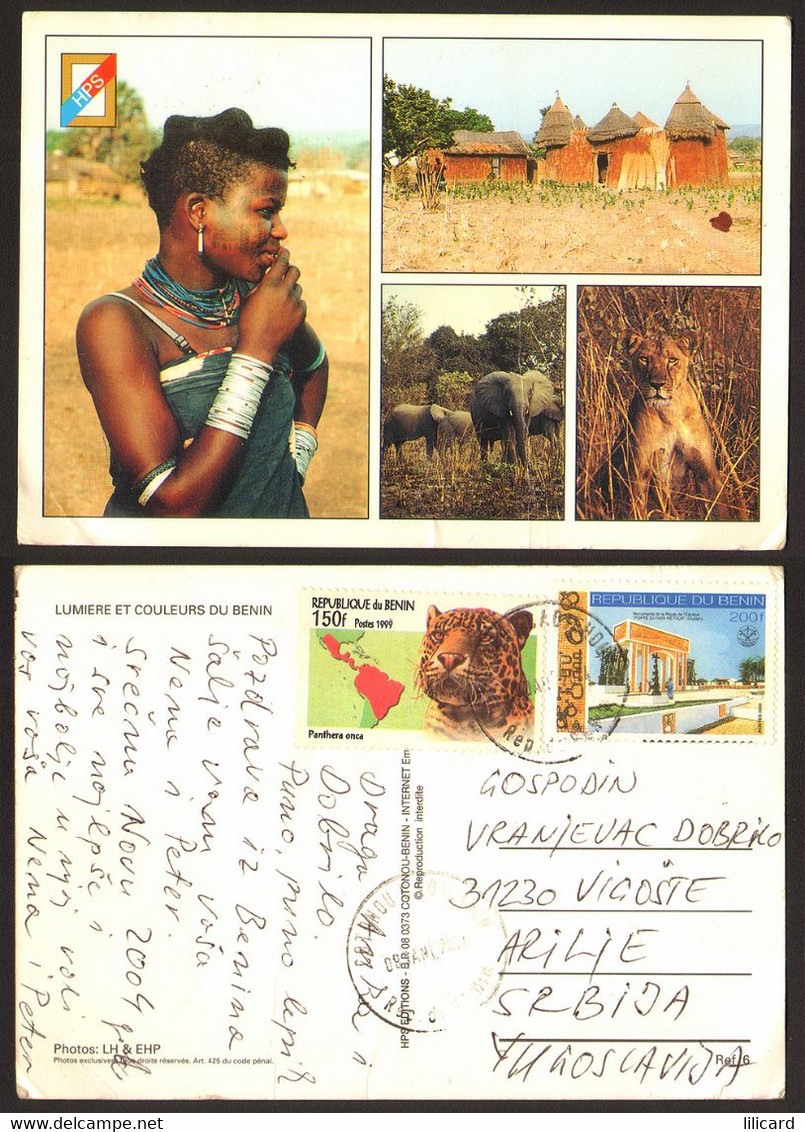 HPS
LUMIERE ET COULEURS DU BENIN
REPUBLIQUE du BENIN
150f
Postes 1999
Panthera onca
REPUBLIQUE DU BENIN
200f
Draga
Dobrilo i
Puno, puno lepih
Pozdrava iz Benina
Šalje vam vaša
Nena i Peter.
Srećnu Novu 2004 god.
i sve najlepše i
najbolje
voli
vas vaša Nena i Peter
GOSPODIN
VRANJEVAC DOBRILO
31230 VIGOŠTE
ARILJE
SRBIJA
YUGOSLAVIJA
HPS EDITIONS - B.P. 08 0373 COTONOU-BENIN - INTERNET
© Reproduction interdite
Photos: LH & EHP
Photos exclusives tous droits réservés. Art. 425 du code pénal.
Ref. 6
lilicard